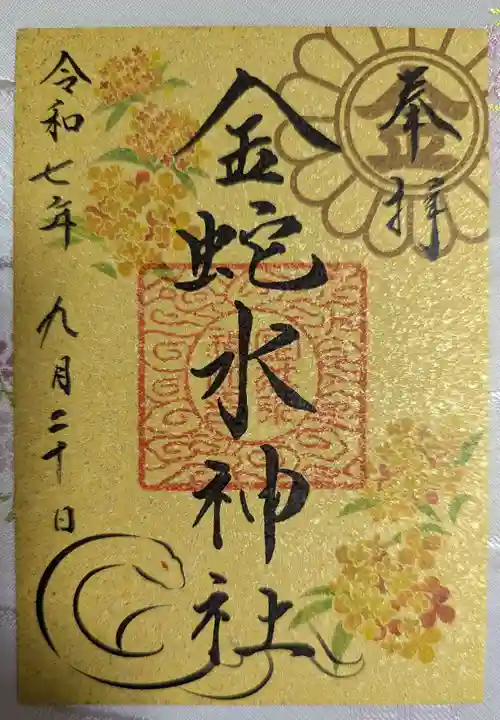 奉拝
金
金蛇水神社
令和七年 九月二十日